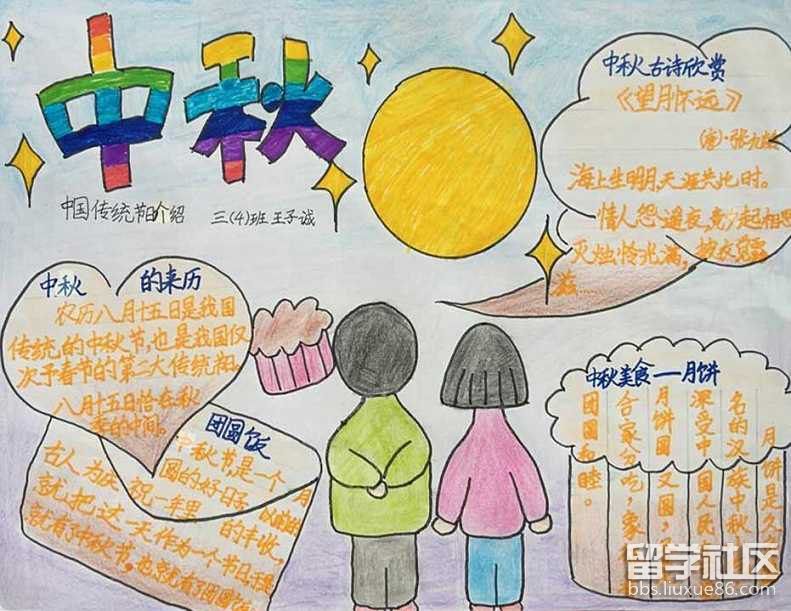 中秋
中国传统节日介绍 三(4)班 王子诚
中秋古诗欣赏
《望月怀远》
(唐)·张九
海上生明月,天涯共此时。
情人怨遥夜,竟夕起相思
灭烛怜光满,披衣觉露
滋
中秋 的来历
农历八月十五日是我国
传统的中秋节,也是我国仅
次于春节的第二大传统节。
八月十五日恰在秋
季的中间。
团圆饭
中秋节是一个
圆的好日子
古人为庆祝一年里 的丰收,
就把这一天作为一个节日,
就有了中秋节,也就有了团圆饭
中秋美食——月饼
月饼是久
名的汉族中秋
深受中国人民
月饼圆又圆,
合家分吃,
团圆和睦。
留学社区
bbs.liuxue86.com